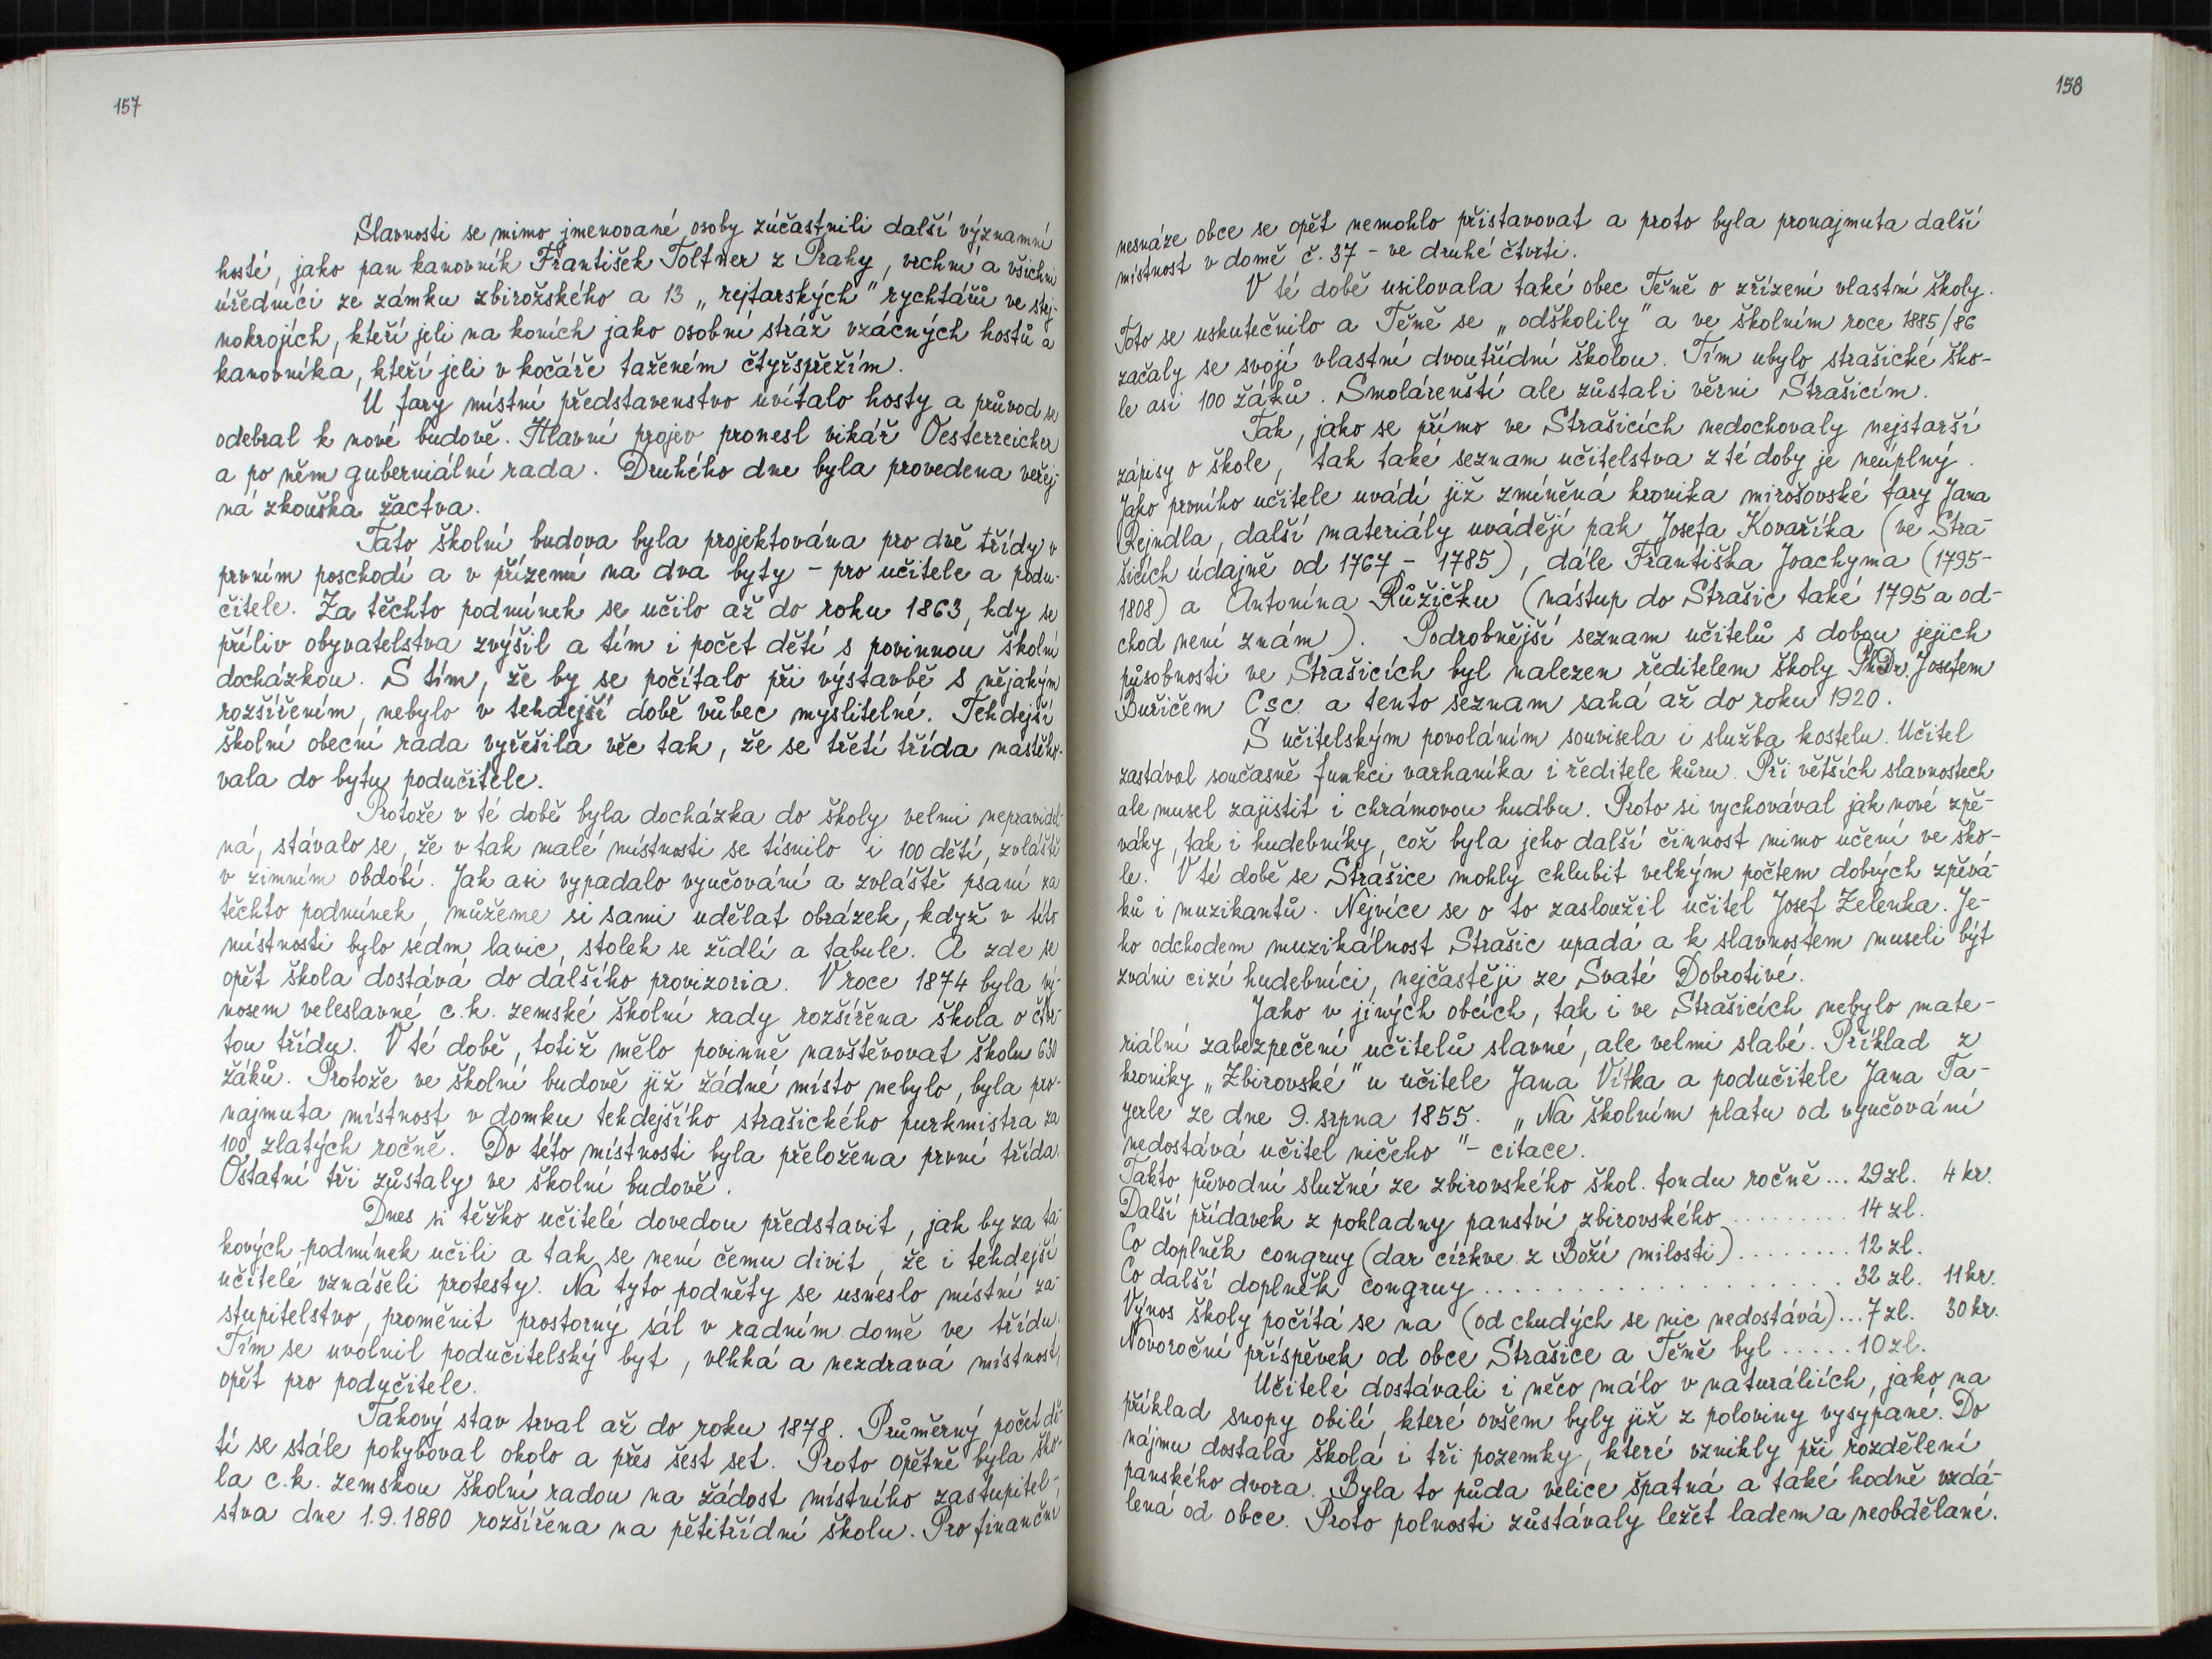 157
Slavnosti se mimo jmenované osoby zúčastnili další významní
hosté, jako pan kanovník František Toltner z Prahy, vrchní a všichni
úředníci ze zámku zbirožského a 13 „rejtarských" rychtářů ve stej-
nokrojích, kteří jeli na koních jako osobní stráž vzácných hostů a
kanovníka, kteří jeli v kočáře taženém čtyřspřežím.
U fary místní představenstvo uvítalo hosty a průvod se
odebral k nové budově. Hlavní projev pronesl vikář Oesterreicher
a po něm guberniální rada. Druhého dne byla provedena veřej-
ná zkouška žactva.
Tato školní budova byla projektována pro dvě třídy v
prvním poschodí a v přízemí na dva byty - pro učitele a podu-
čitele. Za těchto podmínek se učilo až do roku 1863, kdy se
příliv obyvatelstva zvýšil a tím i počet dětí s povinnou školní
docházkou. S tím, že by se počítalo při výstavbě s nějakým
rozšířením, nebylo v tehdejší době vůbec myslitelné. Tehdejší
školní obecní rada vyřešila věc tak, že se třetí třída nastěho-
vala do bytu podučitele.
Protože v té době byla docházka do školy velmi nepravidel-
ná, stávalo se, že v tak malé místnosti se tísnilo i 100 dětí, zvláště
v zimním období. Jak asi vypadalo vyučování a zvláště psaní za
těchto podmínek, můžeme si sami udělat obrázek, když v této
místnosti bylo sedm lavic, stolek se židlí a tabule. A zde se
opět škola dostává do dalšího provizoria. V roce 1874 byla vý-
nosem veleslavné c.k. zemské školní rady rozšířena škola o čtvr-
tou třídu. V té době, totiž mělo povinně navštěvovat školu 630
žáků. Protože ve školní budově již žádné místo nebylo, byla pro-
najmuta místnost v domku tehdejšího strašického purkmistra za
100 zlatých ročně. Do této místnosti byla přeložena první třída.
Ostatní tři zůstaly ve školní budově.
Dnes si těžko učitelé dovedou představit, jak by za ta-
kových podmínek učili a tak se není čemu divit, že i tehdejší
učitelé vznášeli protesty. Na tyto podněty se usneslo místní za-
stupitelstvo, proměnit prostorný sál v radním domě ve třídu.
Tím se uvolnil podučitelský byt, vlhká a nezdravá místnost,
opět pro podučitele.
Takový stav trval až do roku 1878. Průměrný počet dě-
tí se stále pohyboval okolo a přes šest set. Proto opětně byla ško-
la c.k. zemskou školní radou na žádost místního zastupitel-
stva dne 1.9.1880 rozšířena na pětitřídní školu. Pro finanční
158
nesnáze obce se opět nemohlo přistavovat a proto byla pronajmuta další
místnost v domě č. 37 - ve druhé čtvrti.
V té době usilovala také obec Těně o zřízení vlastní školy.
Toto se uskutečnilo a Těně se „odškolily" a ve školním roce 1885/86
začaly se svojí vlastní dvoutřídní školou. Tím ubylo strašické ško-
le asi 100 žáků. Smolárenští ale zůstali věrni Strašicím.
Tak, jako se přímo ve Strašicích nedochovaly nejstarší
zápisy o škole, tak také seznam učitelstva z té doby je neúplný.
Jako prvního učitele uvádí již zmíněná kronika mirošovské fary Jana
Rejndla, další materiály uvádějí pak Josefa Kovaříka (ve Stra-
šicích údajně od 1767 - 1785), dále Františka Joachyma (1795-
1808) a Antonína Růžičku (nástup do Strašic také 1795 a od-
chod není znám). Podrobnější seznam učitelů s dobou jejich
působnosti ve Strašicích byl nalezen ředitelem školy PhDr. Josefem
Buřičem Csc. a tento seznam sahá až do roku 1920.
S učitelským povoláním souvisela i služba kostelu. Učitel
zastával současně funkci varhaníka i ředitele kůru. Při větších slavnostech
ale musel zajistit i chrámovou hudbu. Proto si vychovával jak nové zpě-
váky, tak i hudebníky, což byla jeho další činnost mimo učení ve ško-
le. V té době se Strašice mohly chlubit velkým počtem dobrých zpěvá-
ků i muzikantů. Nejvíce se o to zasloužil učitel Josef Zelenka. Je-
ho odchodem muzikálnost Strašic upadá a k slavnostem museli být
zváni cizí hudebníci, nejčastěji ze Svaté Dobrotivé.
Jako v jiných obcích, tak i ve Strašicích nebylo mate-
riální zabezpečení učitelů slavné, ale velmi slabé. Příklad z
kroniky „Zbirovské" u učitele Jana Vítka a podučitele Jana Ta-
yerle ze dne 9. srpna 1855. „Na školním platu od vyučování
nedostává učitel ničeho" - citace.
Takto původní služné ze zbirovského škol. fondu ročně... 29 zl. 4 kr.
Další přídavek z pokladny panství zbirovského ......... 14 zl.
Co doplněk congruy (dar církve z Boží milosti) ........ 12 zl.
Co další doplněk congruy .................. 32 zl. 11 kr.
Výnos školy počítá se na (od chudých se nic nedostává)... 7 zl. 30 kr.
Novoroční příspěvek od obce Strašice a Těně byl ..... 10 zl.
Učitelé dostávali i něco málo v naturáliích, jako na
příklad snopy obilí, které ovšem byly již z poloviny vysypané. Do
nájmu dostala škola i tři pozemky, které vznikly při rozdělení
panského dvora. Byla to půda velice špatná a také hodně vzdá-
lená od obce. Proto polnosti zůstávaly ležet ladem a neobdělané.